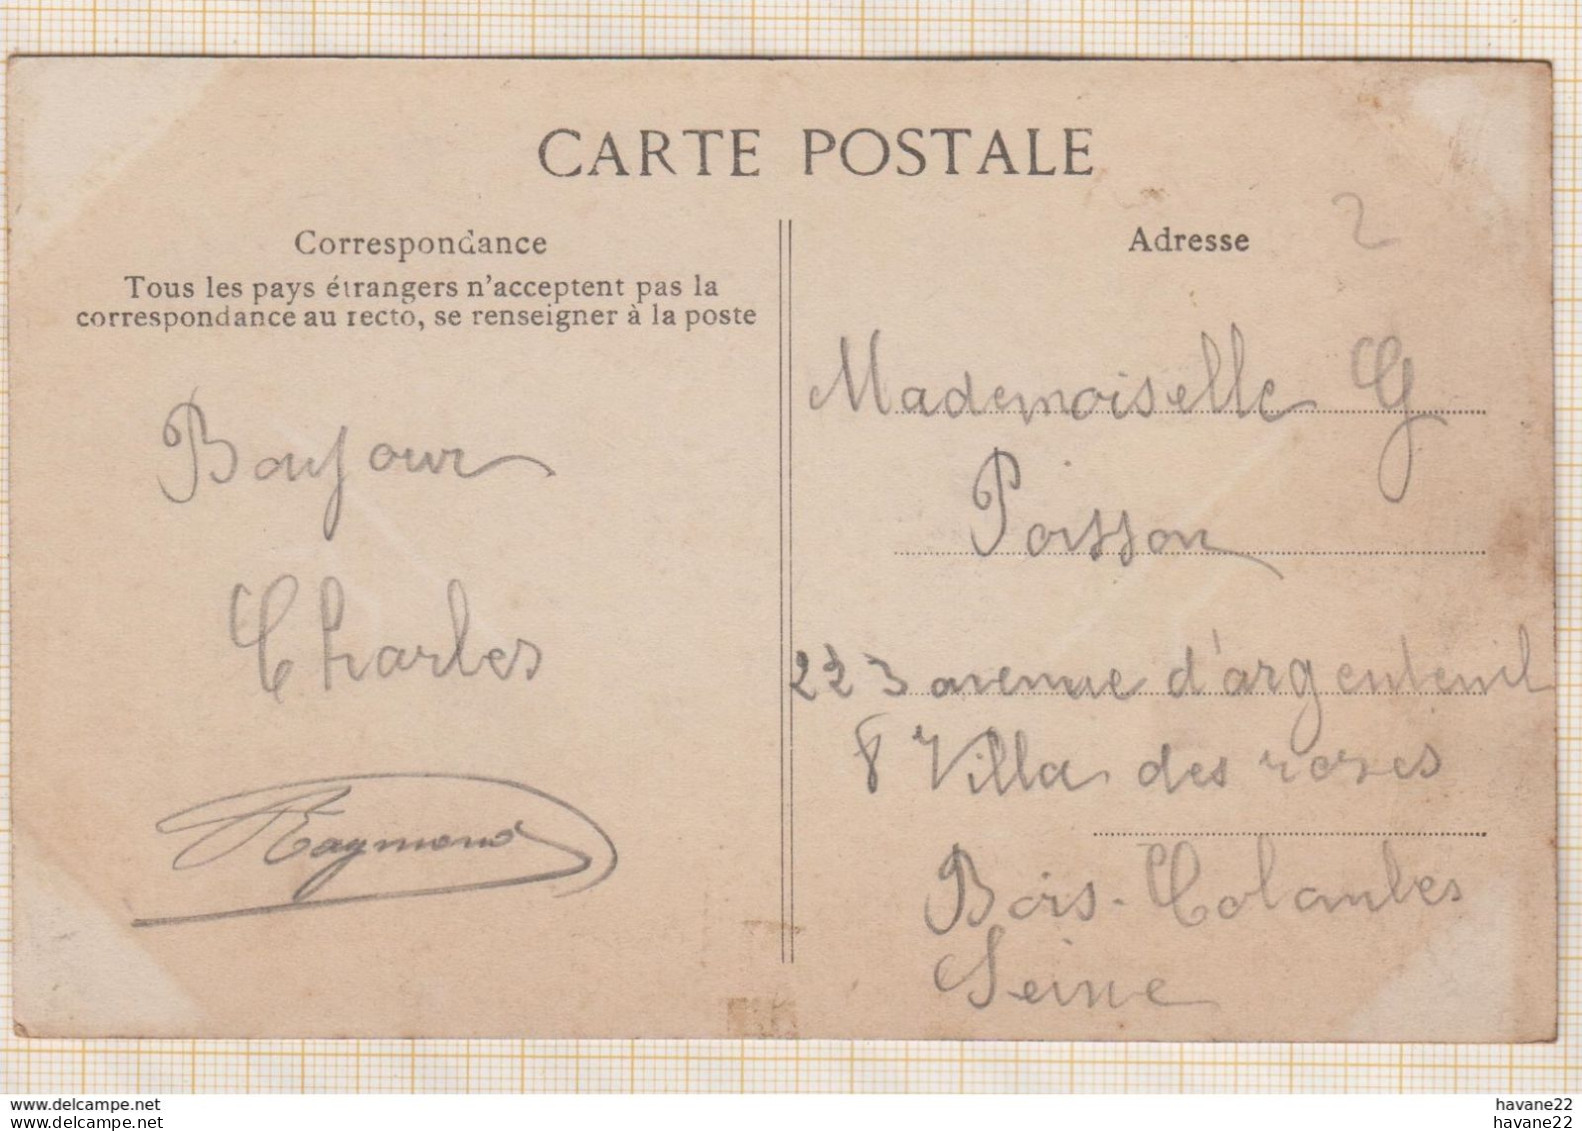 CARTE POSTALE
Correspondance
Tous les pays étrangers n'acceptent pas la
correspondance au recto, se renseigner à la poste
Bonjour
Charles
Raymond
Adresse
2
Mademoiselle G
Poisson
223 avenue d'argenteuil
8 Villa des roses
Bois-Colombes
Seine
www.delcampe.net
www.delcampe.net
havane22
havane22